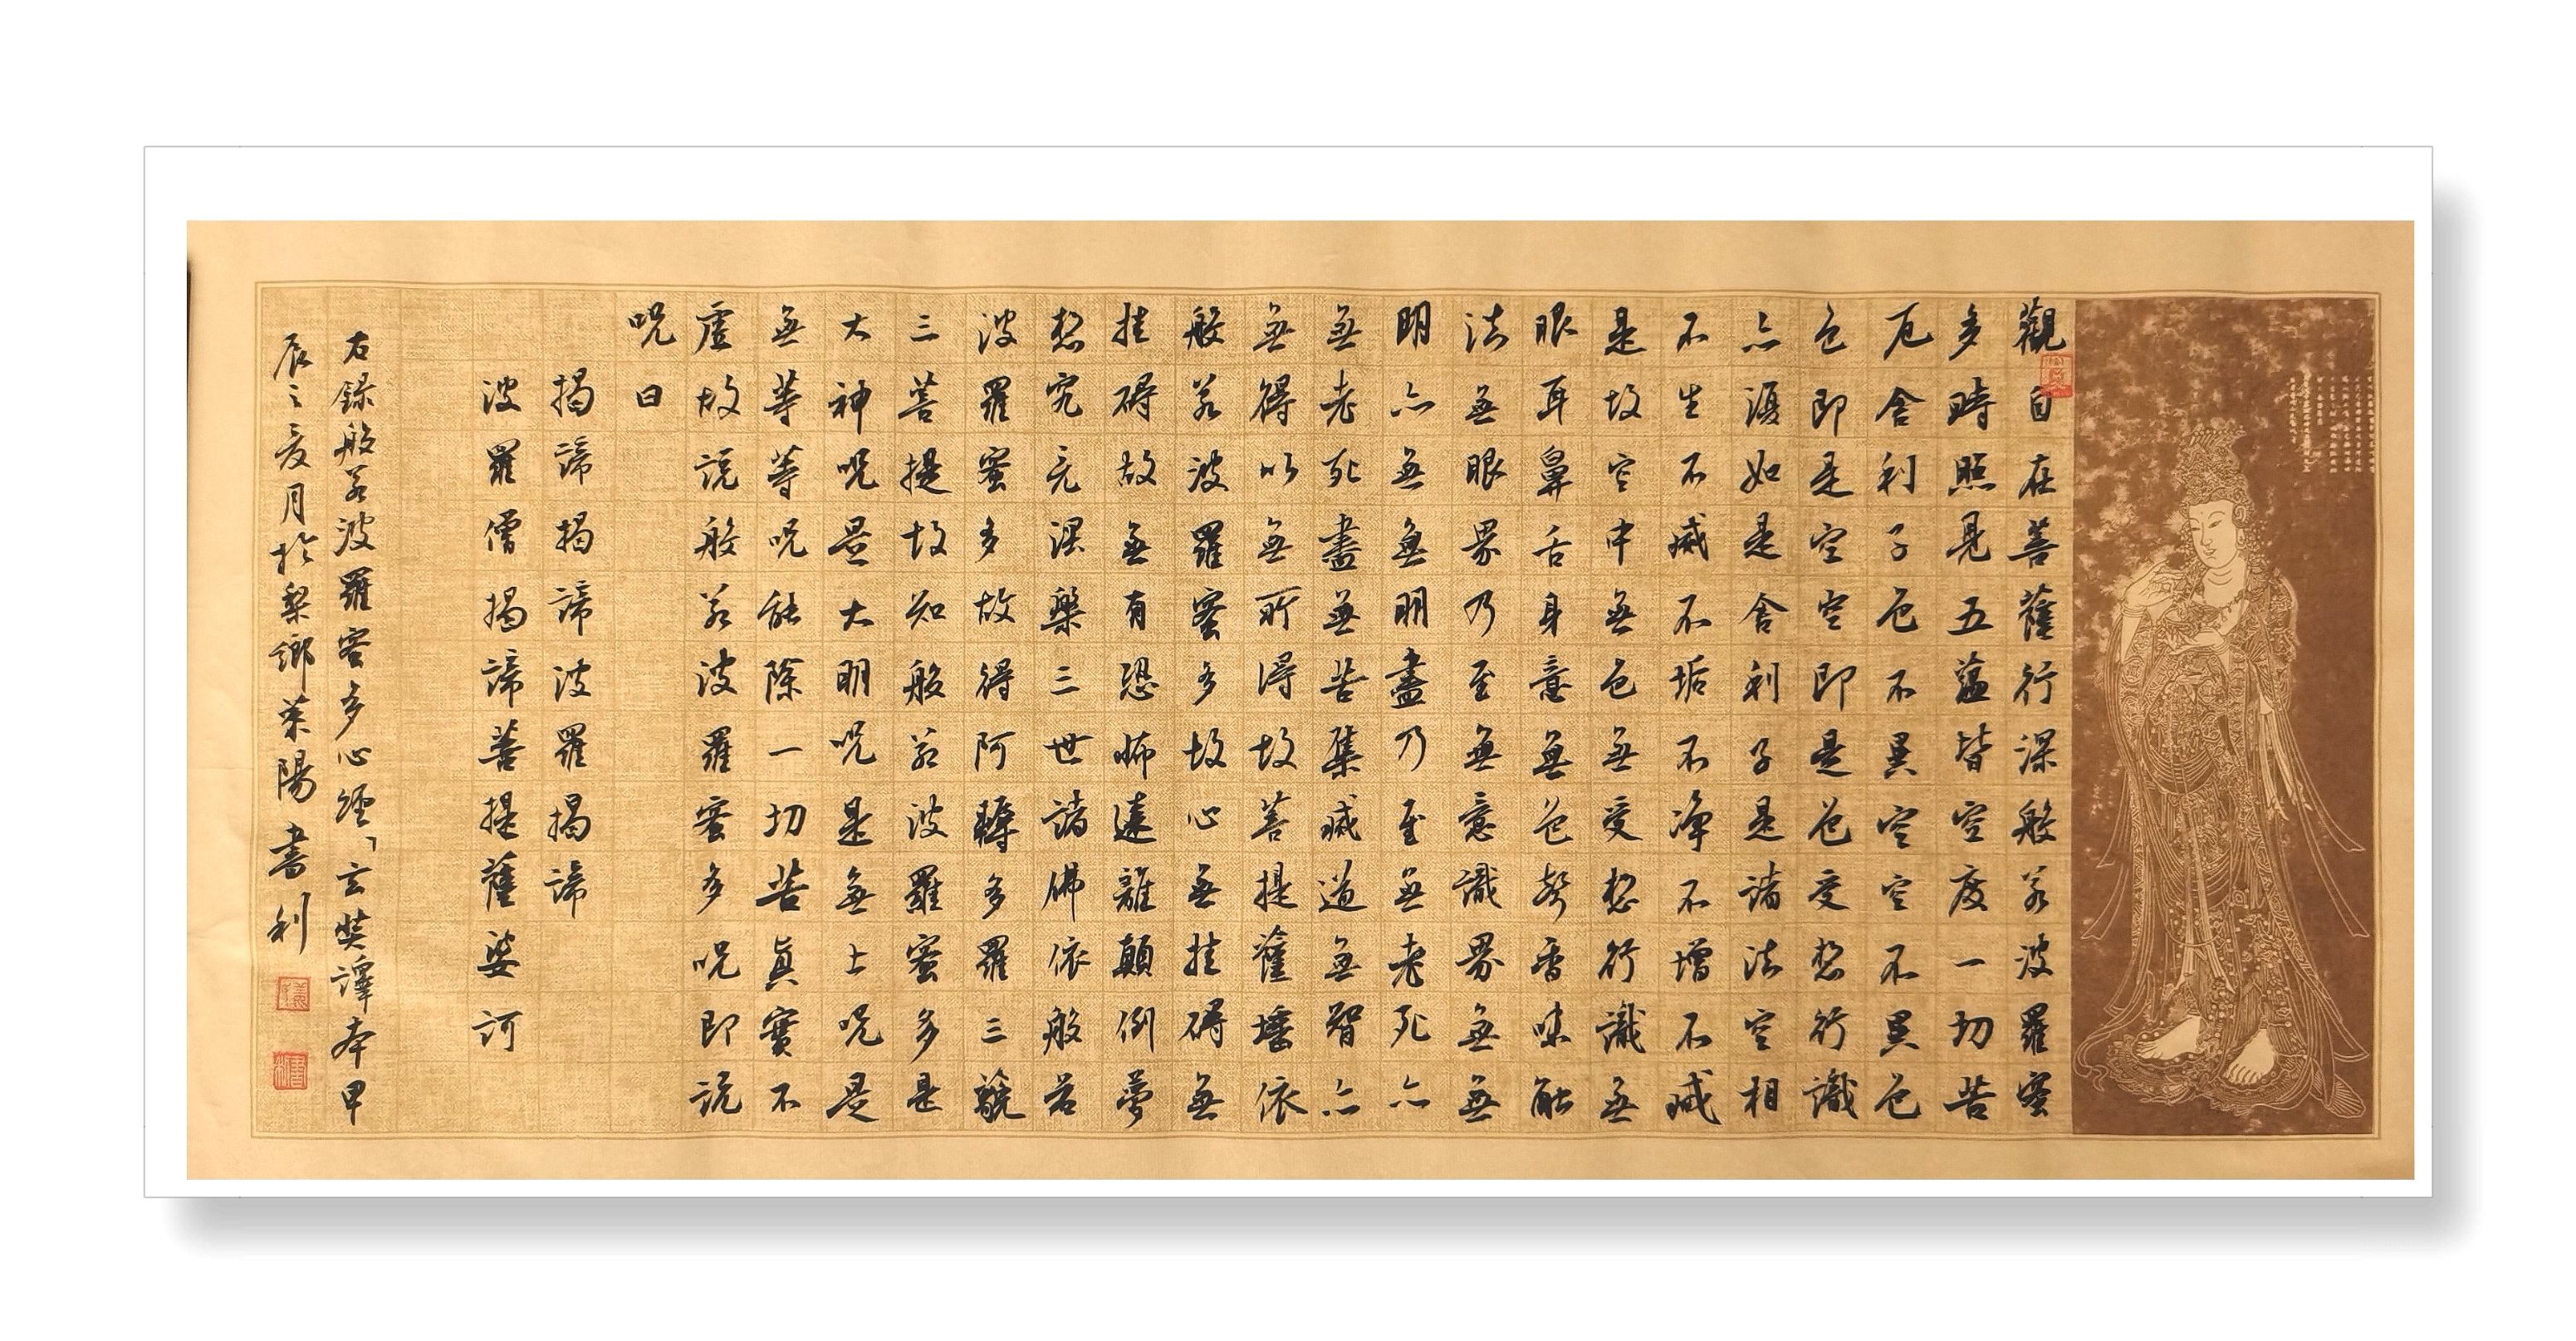 觀自在菩薩行深般若波羅蜜
多時照見五蘊皆空度一切苦
厄舍利子色不異空空不異色
色即是空空即是色受想行識
亦復如是舍利子是諸法空相
不生不滅不垢不淨不增不減
是故空中無色無受想行識無
眼耳鼻舌身意無色聲香味觸
法無眼界乃至無意識界無無
明亦無無明盡乃至無老死亦
無老死盡無苦集滅道無智亦
無得以無所得故菩提薩埵依
般若波羅蜜多故心無挂礙無
挂礙故無有恐怖遠離顛倒夢
想究竟涅槃三世諸佛依般若
波羅蜜多故得阿耨多羅三藐
三菩提故知般若波羅蜜多是
大神呪是大明呪是無上呪是
無等等呪能除一切苦真實不
虛故說般若波羅蜜多呪即說
呪曰
揭諦揭諦波羅揭諦
波羅僧揭諦菩提薩婆訶
右錄般若波羅密多心經「玄奘譯本甲
辰之夏月於梨鄉萊陽書利